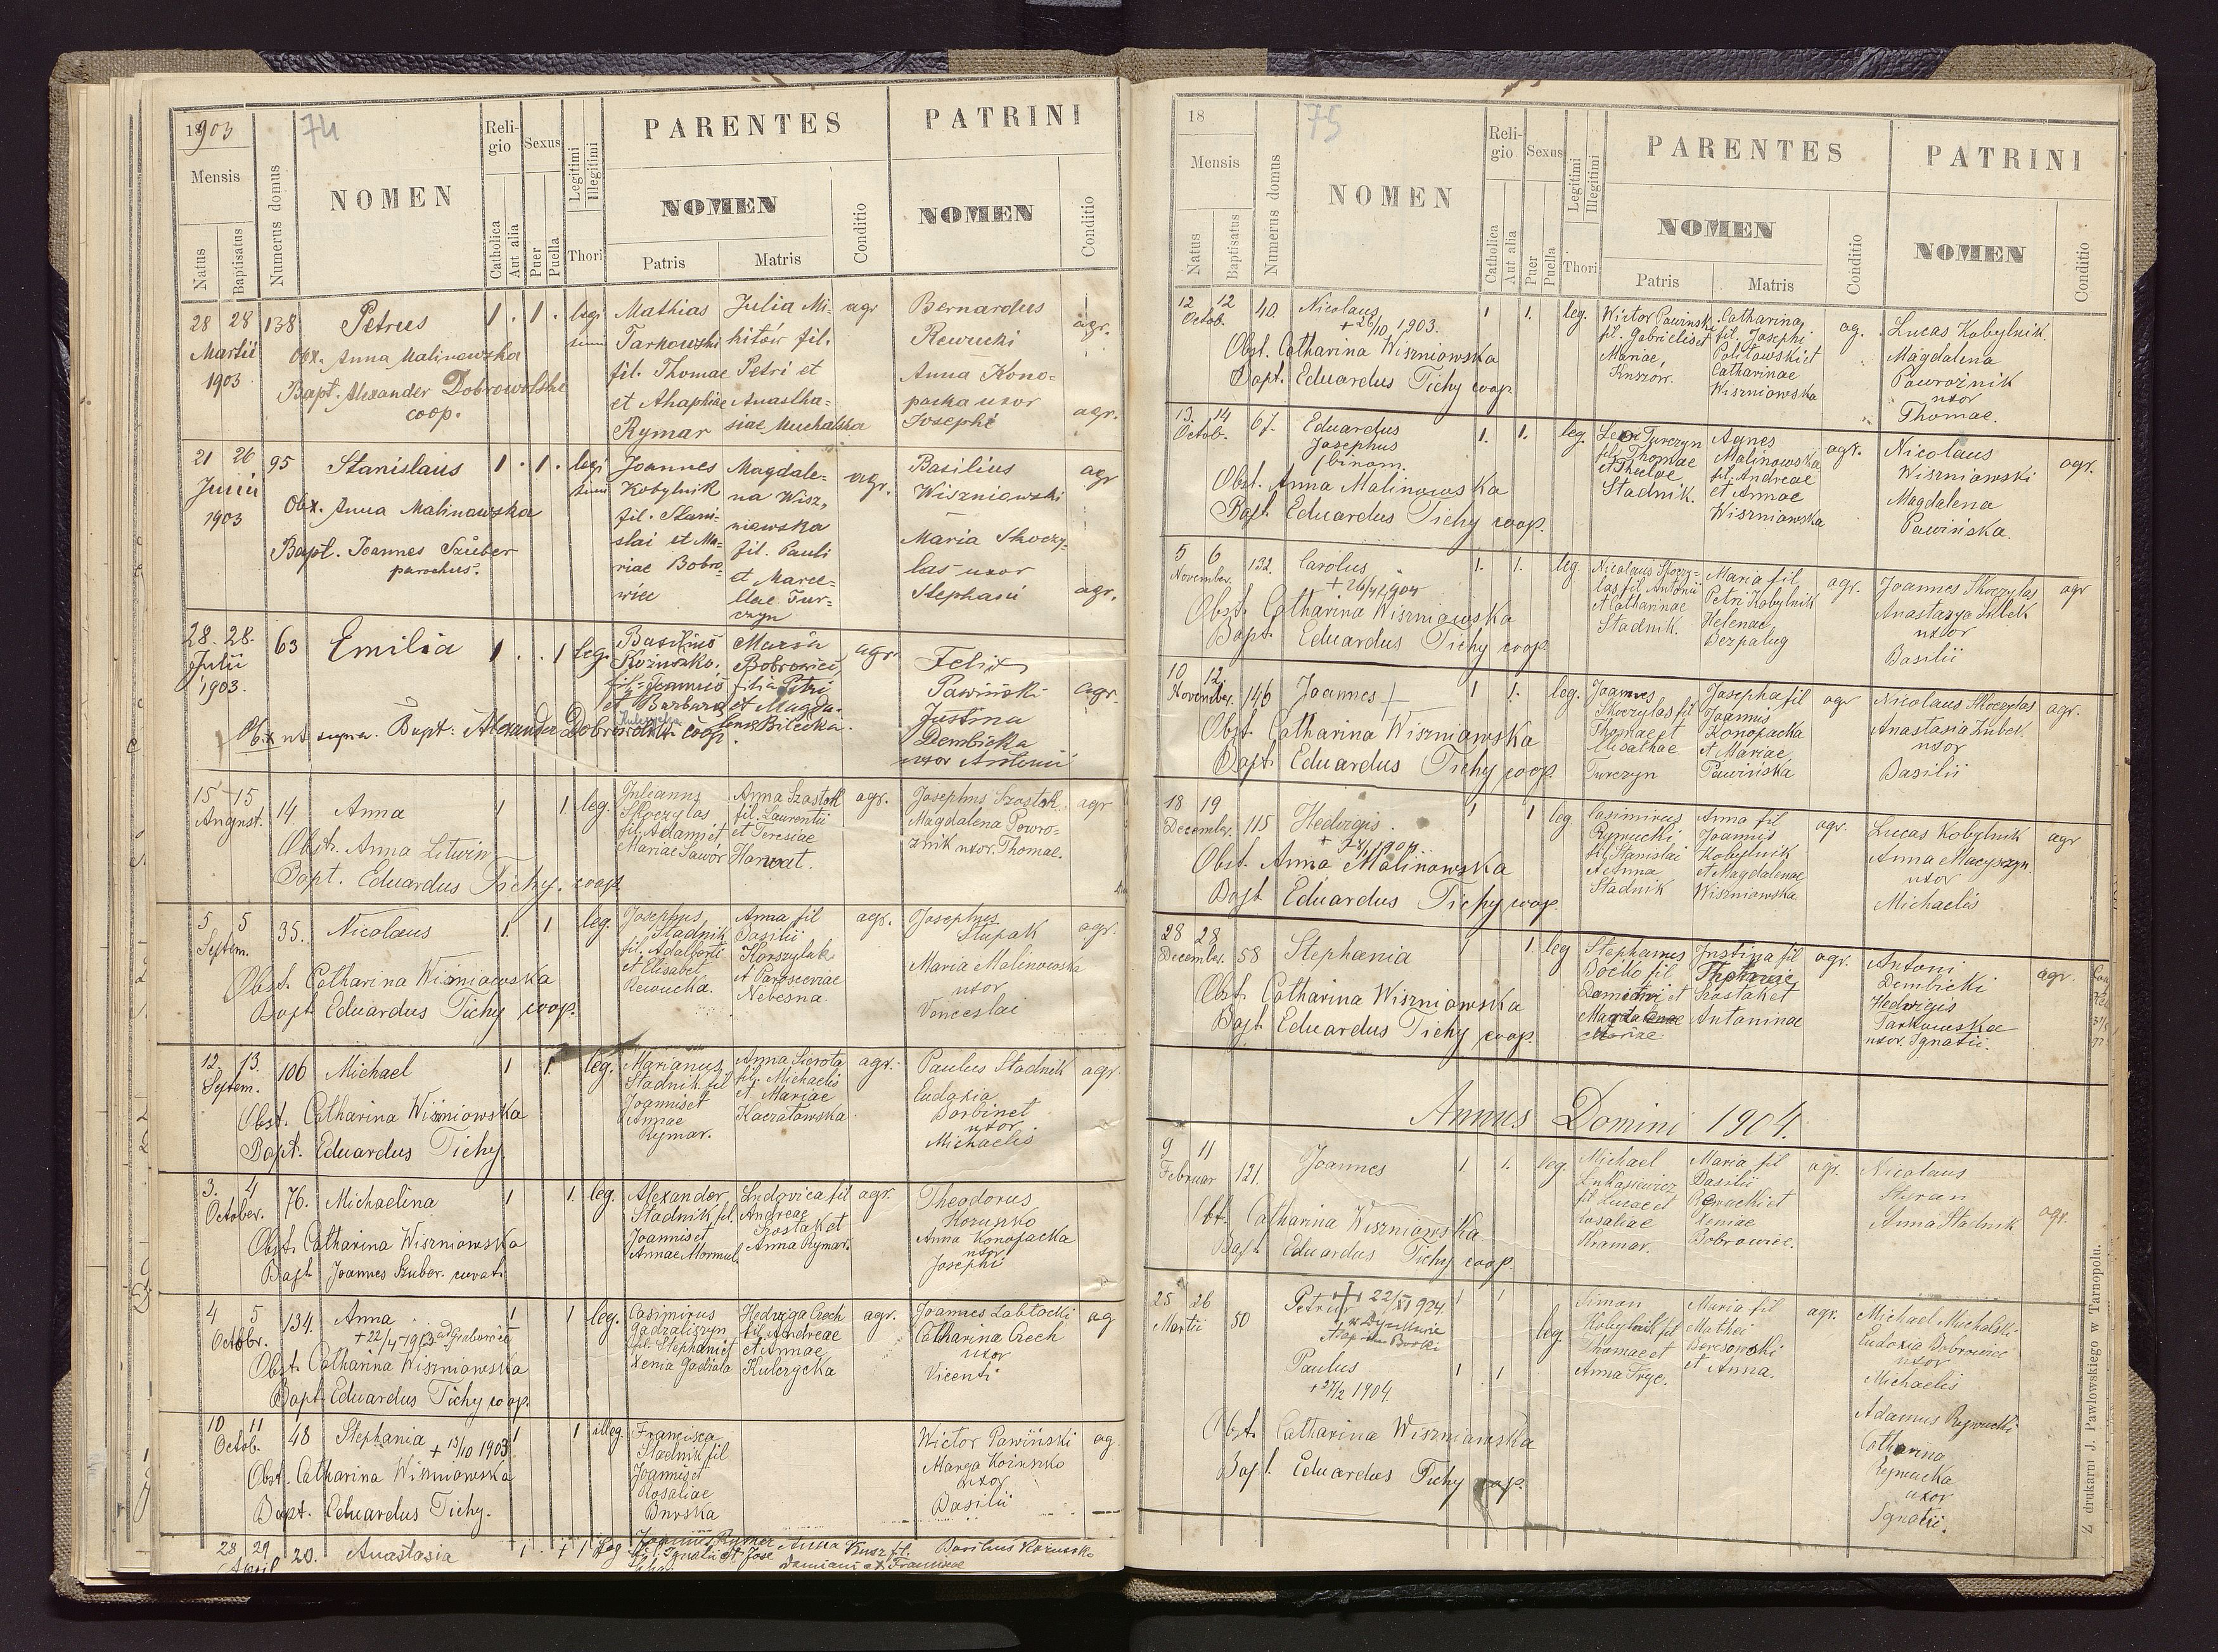 1903
74
Mensis
Natus
Baptisatus
Numerus domus
NOMEN
Religio
Catholica
Aut alia
Sexus
Puer
Puella
Legitimi
Illegitimi
Thori
PARENTES
NOMEN
Patris
Matris
Conditio
PATRINI
NOMEN
Conditio
28 28 138 Petrus 1. 1. legi Mathias Julia Mi- agr Bernardus
Martii timi Tarkowski hitów fil. Rewucki agr.
1903 Obx. Anna Malinowska fil. Thomae Petri et Anna Kono-
Bapt. Alexander Dobrowolski et Ahaphiae Anastha- packa uxor
coop. Rymar siae Muchalska Josephi agr.
21 26 95 Stanislaus 1. 1. legi Joannes Magdale- agr. Basilius agr
Junii timi Kobylnik na Wisz- Wiszniowski
1903 Obx. Anna Malinowska fil. Stani- niewska
slai et Ma- fil. Pauli Maria Skoczy-
Bapt. Joannes Szuber riae Bobro- et Marce- las uxor
parochus. wiec llae Tur- Stephani agr.
czyn
28. 28. 63 Emilia 1 . . 1 leg. Basilius Maria agr.
Julii Kożuszko. Bobrowiec Felix
1903. fil. Joannis filia Petri Pawiński agr.
et Barbara et Magda- Justina
Kulczycka lena Bilecka. Dembicka
Obx ut supra. Bapt: Alexander Dobrowolski coop. uxor Antonii
15 15 14 Anna 1 1 leg. Julianus Anna Szostak agr. Josephus Szostak agr
August. Skoczylas fil. Laurentii Magdalena Powro-
Obst. Anna Litwin fil. Adami et et Teresiae źnik uxor. Thomae.
Bapt. Eduardus Tichy. coop Mariae Sawór Horwat.
5 5 35. Nicolaus 1. 1 leg. Josephus Anna fil agr. Josephus agr.
Septem. Stadnik Basilii Stupak
fil. Adalberti
Obst. Catharina Wiśniowska et Elisabet Maria Malinowska
Bapt Eduardus Tichy coop. Rewucka. Nebesna. uxor
Venceslai
12. 13. 106 Michael 1 1. leg. Marianus Anna Sierota agr. Paulus Stadnik agr
Septem. Stadnik fil fil. Michaelis Eudoxia
Obst. Catharina Wiśniowska Joannis et et Mariae Borbinet
Bapt. Eduardus Tichy. Annae Kaczatowska. uxor
Rymar. Michaelis
3. 4 76. Michaelina 1 1. leg. Alexander Ludovica fil agr. Theodorus
October. Stadnik fil. Andreae Kozuszko
Obst. Catharina Wiszniowska Joannis et Szostak et Anna Konopacka
Bapt Joannes Szuber. curat. Annae Mormul Anna Rymar. uxor
Josephi
4 5 134. Anna 1 1 leg. Casimirus Hedviga Czech agr. Joannes Labtocki ag
Octobr. +22/4 1903 Gadzaliszyn fil. Andreae Catharina Czech
Obst. Catharina Wiszniowska fil. Stephani et et Annae uxor
Bapt. Eduardus Tichy coop. Xenia Gadziala Kulczycka Vicenti
10 11 48 Stephania 1 1 illeg. Francisca Wictor Pawiński ag.
Octob. + 13/10 1903. Stadnik fil Kożuszko
Obst. Catharina Wiszniowska Joannis et uxor
Bapt. Eduardus Tichy. Rosaliae Basilii
Burska
28 29 20. Anastasia 1 1 leg Joannes Rymar Anna Kusz fil. Basilius Kożuszko
April fil Ignatii et Jose- Damiani et Franciscae
18
75
Mensis
Natus
Baptisatus
Numerus domus
NOMEN
Religio
Catholica
Aut alia
Sexus
Puer
Puella
Legitimi
Illegitimi
Thori
PARENTES
NOMEN
Patris
Matris
Conditio
PATRINI
NOMEN
Conditio
12 12 40. Nicolaus 1 1. leg. Wictor Pawiński Catharina ag. Lucas Kobylnik.
Octob. + 26/10 1903. fil. Gabrielis et fil. Josephi Magdalena
Obst. Catharina Wiszniowska Mariae, Politowski et Powroźnik
Bapt. Eduardus Tichy coop. Kuszów. Catharinae uxor
Wiszniowska Thomae.
13. 14 67. Eduardus 1. 1. leg. Leo Turczyn Agnes agr. Nicolaus
Octob. Josephus fil. Thomae Malinowska Wiszniowski agr.
(binom. et Theclae fil. Andreae Magdalena
Obst. Anna Malinowska Stadnik. et Annae Pawińska.
Bapt Eduardus Tichy coop. Wiszniowska
5 6 132. Carolus 1. 1. leg. Nicolaus Skoczy- Maria fil. agr. Joannes Skoczylas agr
November. + 26/4 1904 las fil. Antonii Petri Kobylnik Anastazya Zubek
Obst. Catharina Wiszniowska et Catharinae Helenae uxor
Bapt. Eduardus Tichy coop. Stadnik. Bezpalug Basilii
10 12. 146 Joannes + 1 1. leg. Joannes Josepha fil agr Nicolaus Skoczylas agr.
November. Skoczylas fil Joannis Anastasia Zubek
Obst. Catharina Wiszniowska Thomae et Konopacka uxor
Bapt. Eduardus Tichy coop. et Mariae Basilii
Turczyn Pawińska
18 19 115 Hedvigis. 1 1 leg. Casimirus Anna fil agr. Lucas Kobylnik agr
December. Rewucki Joannis Anna Macyszyn.
Obst. Anna Malinowska fil Stanislai Kobylnik uxor
Bapt Eduardus Tichy coop. et Anna et Magdalenae Michaelis
Stadnik Wiszniowska
28 28 58 Stephania 1 1 leg Stephanus Justina fil agr. Antoni agr.
December. Boćko fil Thomae Dembicki
Obst. Catharina Wiszniowska et Szostak et Hedvigis
Bapt Eduardus Tichy coop. Magdalenae Antoninae Tarkowska
uxor. Ignatii.
Annus Domini 1904.
9 11 121. Joannes 1 1. leg. Michael Maria fil agr. Nicolaus
Februar Lukasiewicz Basilii Styran
Obt. Catharina Wiszniowska fil Lucae et Rewucki et Anna Stadnik agr.
Bapt Eduardus Tichy coop. Rosaliae Xeniae
Kramar. Bobrowiec.
25 26 50 Petrus + 22/XI 924 1 1 Simon Maria fil agr. Michael Muchalski
Martii leg. Kobylnik fil Mathei Eudoxia Bobrowiec
Thomae et Beresowski uxor
Paulus 1 1 Anna Fryc. et Anna. Michaelis
+ 27/2 1904.
Adamus Rewucki
Obst. Catharina Wiszniowska Catharina
Bapt. Eduardus Tichy coop. Rewucka
uxor
Ignatii.
Z drukarni J. Pawłowskiego w Tarnopolu.